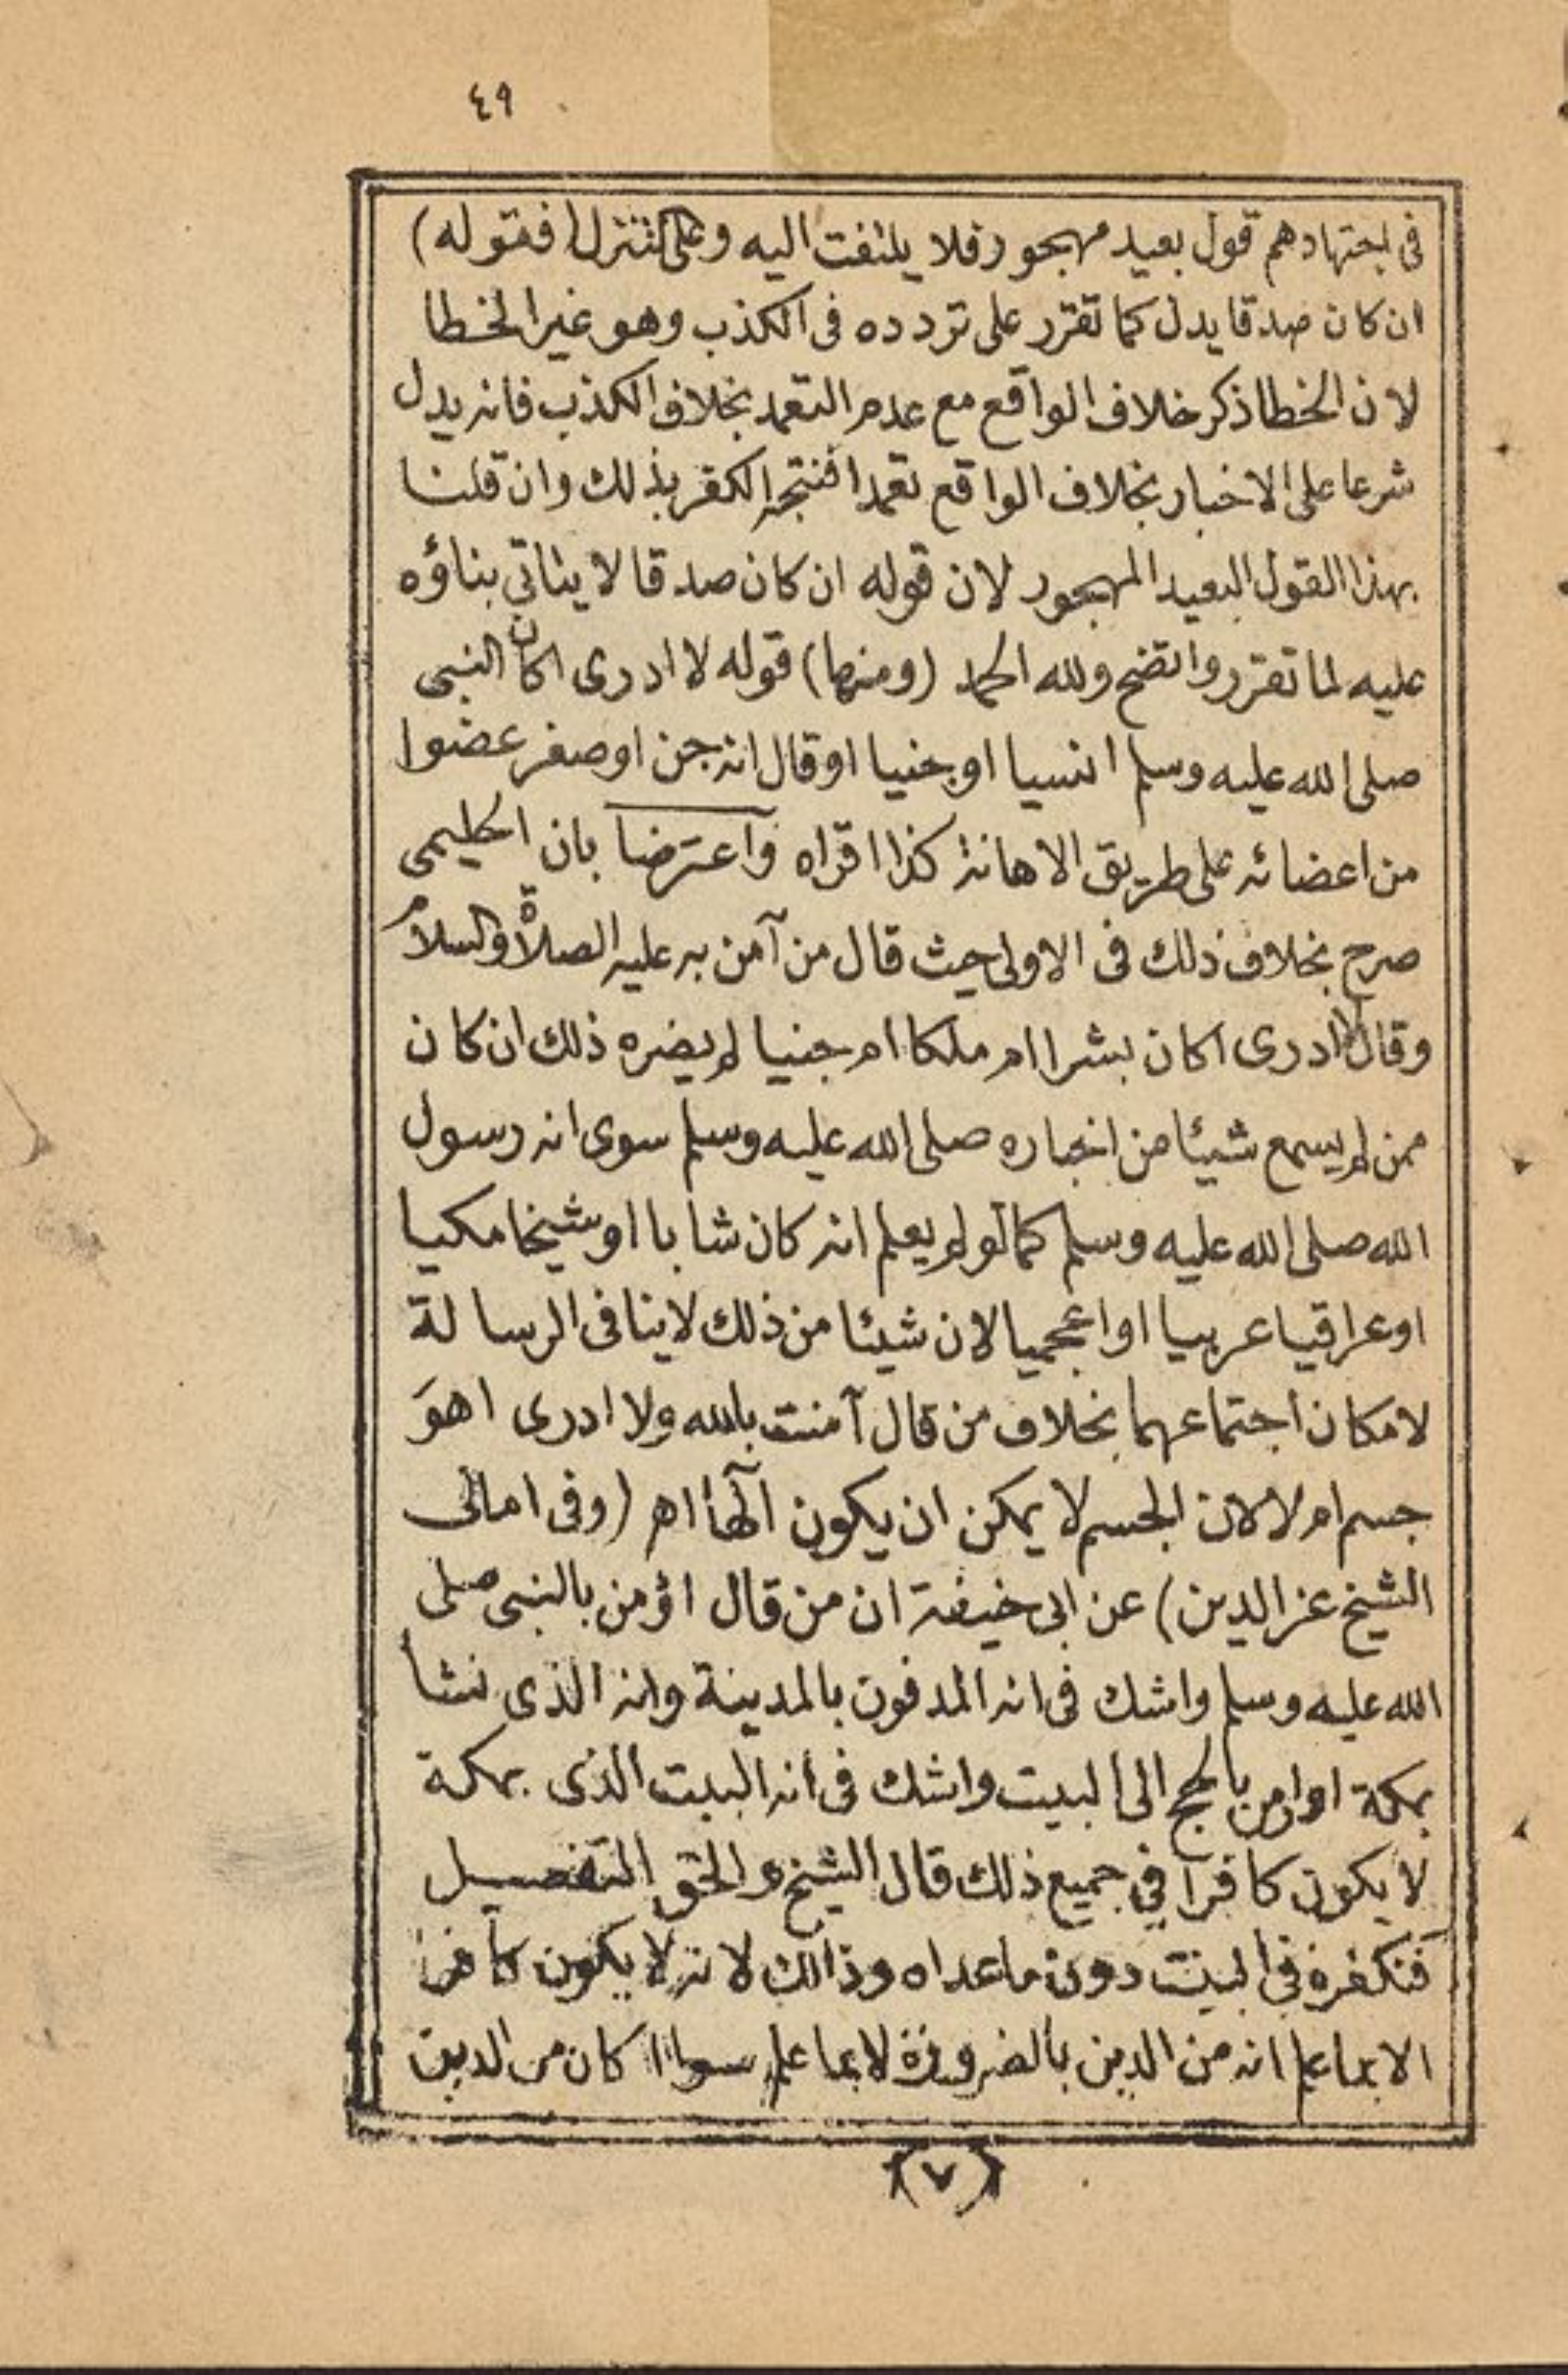 ٤٩
فى اجتهادهم قول بعيد مهجور فلا يلتفت اليه وعلى التنزل (فقوله)
ان كان صدقا يدل كما تقرر على تردده فى الكذب وهو غير الخطا
لان الخطا ذكر خلاف الواقع مع عدم التعمد بخلاف الكذب فانه يدل
شرعا على الاخبار بخلاف الواقع تعمدا فنتجه الكفر بذلك وان قلنا
بهذا القول البعيد المهجور لان قوله ان كان صدقا لا يتأتى بناؤه
عليه لما تقرر واتضح ولله الحمد (ومنها) قوله لا ادرى اكان النبى
صلى الله عليه وسلم انسيا او جنيا او قال انه جن او صغر عضوا
من اعضائه على طريق الاهانة كذا اقراه وآعترضا بان الحليمى
صرح بخلاف ذلك فى الاولى حيث قال من آمن به عليه الصلاة والسلام
وقال لا ادرى اكان بشرا ام ملكا ام جنيا لم يضره ذلك ان كان
ممن لم يسمع شيئا من اخباره صلى الله عليه وسلم سوى انه رسول
الله صلى الله عليه وسلم كما لو لم يعلم انه كان شابا او شيخا مكيا
او عراقيا عربيا او اعجميا لان شيئا من ذلك لا ينافى الرسالة
لامكان اجتماعهما بخلاف من قال آمنت بالله ولا ادرى اهو
جسم ام لا لان الجسم لا يمكن ان يكون آلها اهـ (وفى امالى
الشيخ عز الدين) عن ابى حنيفة ان من قال اؤمن بالنبى صلى
الله عليه وسلم واشك فى انه المدفون بالمدينة وانه الذى نشأ
بمكة او اومن بالحج الى البيت واشك فى انه البيت الذى بمكة
لا يكون كافرا في جميع ذلك قال الشيخ والحق التفصيل
فنكفره في البيت دون ما عداه وذالك لانه لا يكون كافرا
الا بما علم انه من الدين بالضرورة لا بما علم سواا كان من الدين
(٧)